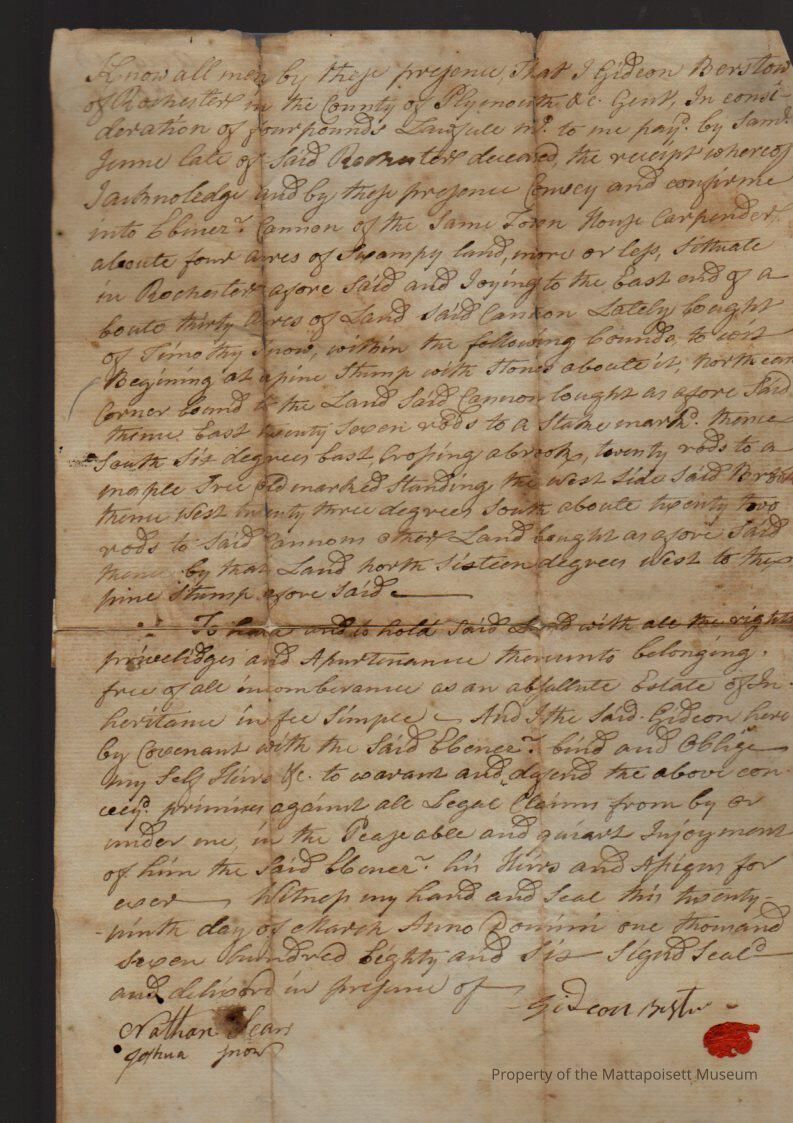 Know all men by these presence, That I Gideon Berstow
of Rochester in the County of Plymouth &c. Gent, In consi-
deration of four pounds Lawfull m.y to me pay.d by Sam.l
Jenne late of Said Rochester deceased, the receipt whereof
I acknoledge and by these presence Convey and confirme
unto Ebener.r Cannon of the Same Town House Carpender,
aboute four acres of Swampy land, more or less, Sittuate
in Rochester afore Said and Joying to the East end of a
boute thirty Acres of Land Said Cannon Lately bought
of Timothy Snow, within the following bounds, to wit
Begining at a pine Stump with Stones aboute it, north
Corner bound to the Land Said Cannon bought as afore Said
thence East twenty Seven rods to a Stake mark.d thence
South Six degrees East, Crossing a brook, twenty rods to a
maple Tree old marked Standing the west Side Said Brook
thence West twenty three degrees South aboute twenty two
rods to Said Cannons other Land bought as afore Said
thence by that Land north Sixteen degrees West to the
pine Stump afore Said
To have and to hold Said Land with all the rights
privelidges and Apurtenance thereunto belonging.
free of all incomberance as an absullute Estate of In-
heritance in fee Simple And I the Said Gideon here
by Covenant with the Said Ebener.r bind and Oblige
my Self Heirs &c. to warant and defend the above con-
vey.d primises against all Legal Claims from by or
under me, in the Peaseable and quiart Injoyment
of him the Said Ebener.r his Heirs and Assigns for
ever Witness my hand and Seal this twenty-
ninth day of March Anno Domini one thousand
Seven hundred Eighty and Six Signd Seal.d
and deliverd in presence of
Gideon
Nathan Sears
Joshua Snow
Property of the Mattapoisett Museum